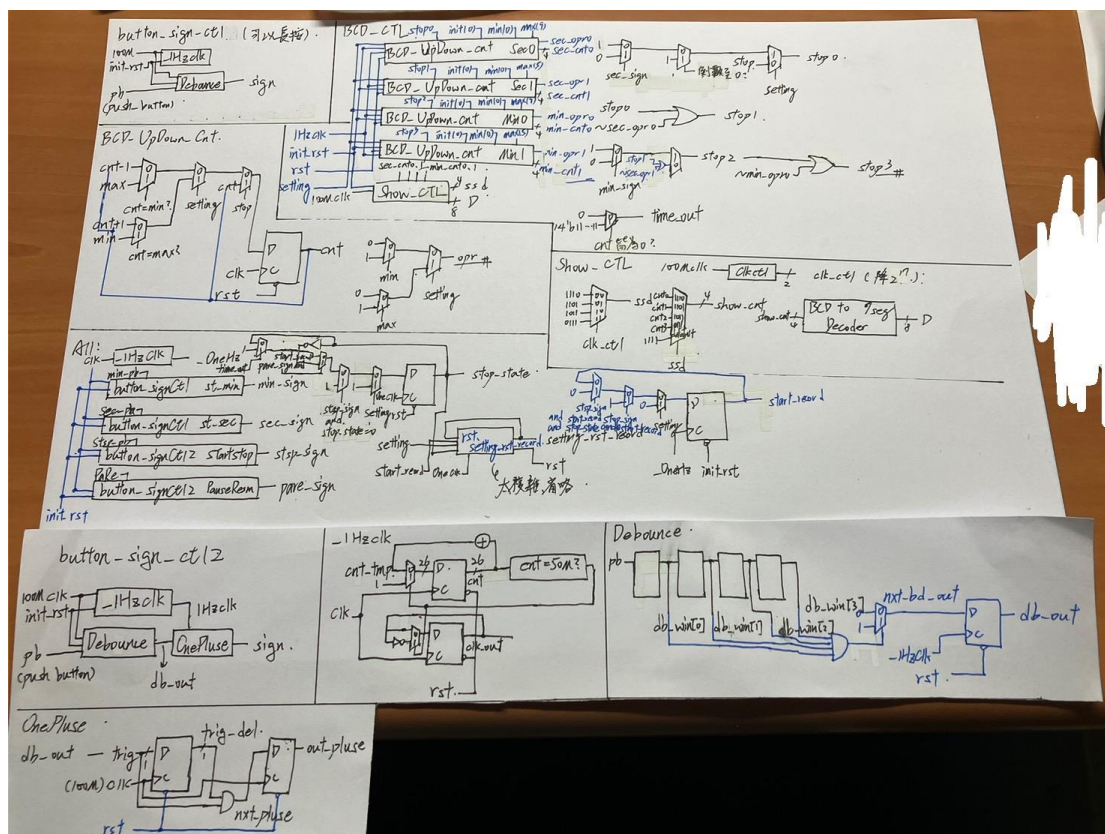 button_sign_ctl (可以長按).
100M
init_rst
_1Hzclk
Debounce
sign
pb
(push_button)
BCD_CTL
stop0 init(0) min(0) max(9)
BCD_UpDown_cnt Sec0
sec_opr0
sec_cnt0
stop1 init(0) min(0) max(5)
BCD_UpDown_cnt Sec1
sec_opr1
sec_cnt1
stop2 init(0) min(0) max(9)
BCD_UpDown_cnt Min0
min_opr0
min_cnt0
stop3 init(0) min(0) max(5)
BCD_UpDown_cnt Min1
min_opr1
min_cnt1
1Hzclk
init_rst
rst
setting
100Mclk
Show_CTL
ssd
8
D
sec_sign
倒數至0?
stop
setting
stop0.
stop0
~sec_opr0
stop1.
min_sign
stop1
~sec_opr1
stop2
~min_opr0
stop3
#
time_out
BCD_UpDown_Cnt.
cnt-1
max
cnt=min?
cnt+1
min
cnt=max?
setting
cnt
stop
D
clk
C
rst
cnt
0
1
min
0
1
max
setting
opr #
Show_CTL
100Mclk
Clkctl
2
clk_ctl (降2^17):
1110
1101
1011
0111
clk_ctl
ssd
cnt0
cnt1
cnt2
cnt3
1110
1101
1011
0111
4
show_cnt
ssd
show_cnt
4
BCD to 7seg
Decoder
8
D
All:
clk
_1HzClk
_OneHz
min_pb
button_signCtl st_min
min_sign
sec_pb
button_signCtl st_sec
sec_sign
stsp_pb
button_signCtl2 startstop
stsp_sign
PaRe
button_signCtl2 PauseResm
pare_sign
init_rst
time_out
stsp_sign
and
stop_state=0
setting
rst
D
C
stop_state
setting
start_record
OneClk
rst
setting_rst_record
rst
太複雜,省略
setting
_OneHz
init_rst
D
C
start_record
button_sign_ctl2
100M clk
init_rst
_1Hzclk
1Hzclk
Debounce
OnePluse
sign
pb
(push button)
db_out
_1Hzclk
cnt_tmp
1
26
D
C
26
cnt
cnt=50M?
Clk
D
C
clk_out
rst
Debounce
pb
db_win[0]
db_win[1]
db_win[2]
db_win[3]
0
1
nxt_bd_out
D
C
_1HzClk
rst
db_out
OnePluse
db_out
trig
1
(100M) Clk
D
C
trig_del.
1
nxt_pluse
D
C
out_pluse
rst